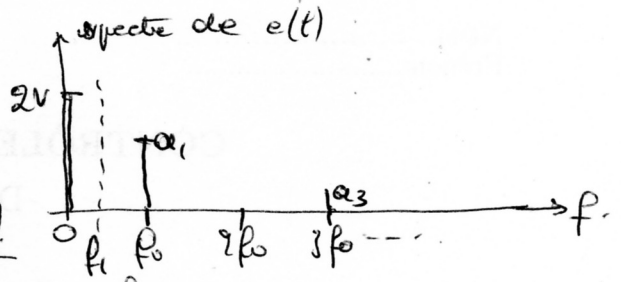 spectre de e(t)
2V
a₁
a₃
0 f₁ f₀ 2f₀ 3f₀ ---- f.